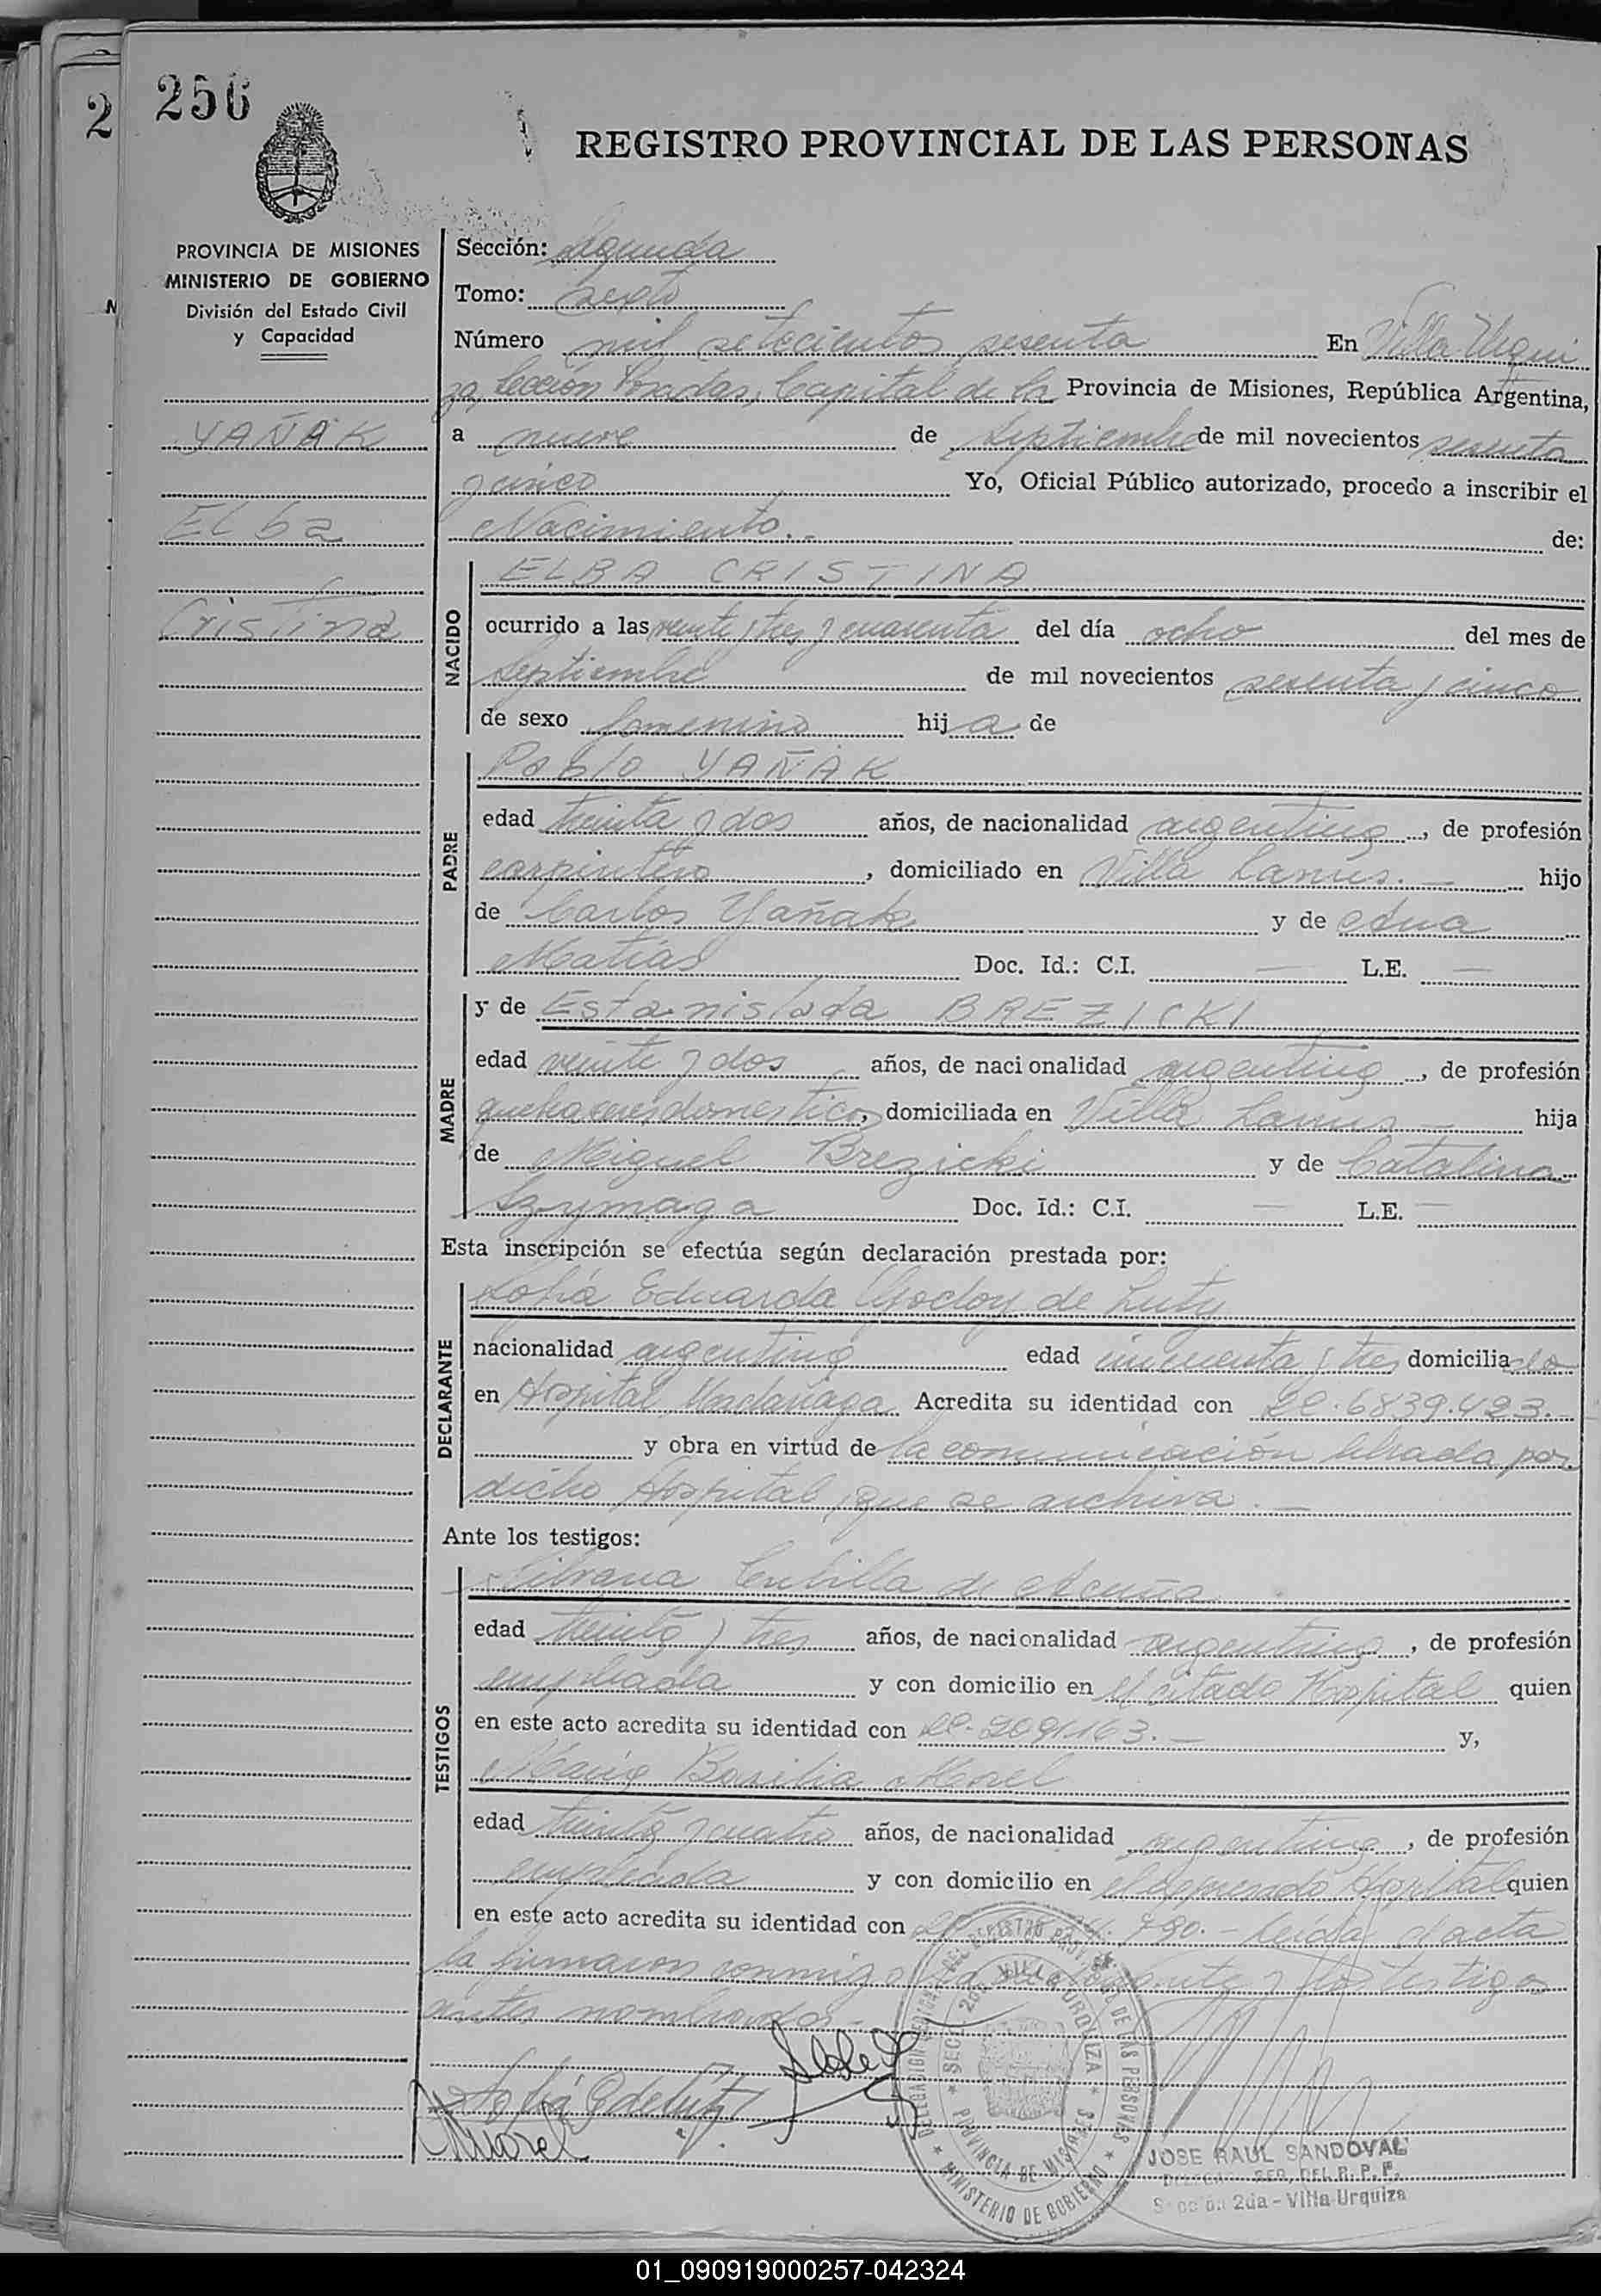 2
256
REGISTRO PROVINCIAL DE LAS PERSONAS
PROVINCIA DE MISIONES
MINISTERIO DE GOBIERNO
División del Estado Civil
y Capacidad
YAÑAK
Elba
Cristina
Sección: Segunda
Tomo: sexto
Número mil setecientos sesenta En Villa Urqui
za, Sección Posadas, Capital de la Provincia de Misiones, República Argentina,
a nueve de Septiembre de mil novecientos sesenta
y cinco Yo, Oficial Público autorizado, procedo a inscribir el
Nacimiento.- de:
NACIDO
ELBA CRISTINA
ocurrido a las veinte y tres y cuarenta del día ocho del mes de
Septiembre de mil novecientos sesenta y cinco
de sexo femenino hija de
PADRE
Pablo YAÑAK
edad treinta y dos años, de nacionalidad argentina, de profesión
carpintero, domiciliado en Villa Lanus.- hijo
de Carlos Yañak y de Ana
Matías Doc. Id.: C.I. — L.E. —
MADRE
y de Estanislada BREZICKI
edad veinte y dos años, de nacionalidad argentina, de profesión
quehaceres domesticos, domiciliada en Villa Lanus - hija
de Miguel Brezicki y de Catalina
Szymaga Doc. Id.: C.I. — L.E. —
Esta inscripción se efectúa según declaración prestada por:
DECLARANTE
Sofía Eduarda Godoy de Luty
nacionalidad argentina edad cincuenta y tres domiciliada
en Hospital Madariaga Acredita su identidad con LC. 6839.423.-
y obra en virtud de la comunicación librada por
dicho Hospital, que se archiva.-
Ante los testigos:
TESTIGOS
Silvana Cubilla de Acuña
edad treinta y tres años, de nacionalidad argentina, de profesión
empleada y con domicilio en el citado Hospital quien
en este acto acredita su identidad con LC. 2091.163.- y,
María Basilia Morel
edad treinta y cuatro años, de nacionalidad argentina, de profesión
empleada y con domicilio en el expresado Hospital quien
en este acto acredita su identidad con 790.- Leída el acta
la firmaron conmigo la declarante y los testigos
antes nombrados.-
Sofía G de Luty
Morel
DELEGACION DEL REGISTRO PROVINCIAL DE LAS PERSONAS
SECC. 2da VILLA URQUIZA
PROVINCIA DE MISIONES
MINISTERIO DE GOBIERNO
JOSE RAUL SANDOVAL
DEL R. P. P.
Sección 2da - Villa Urquiza
01_090919000257-042324